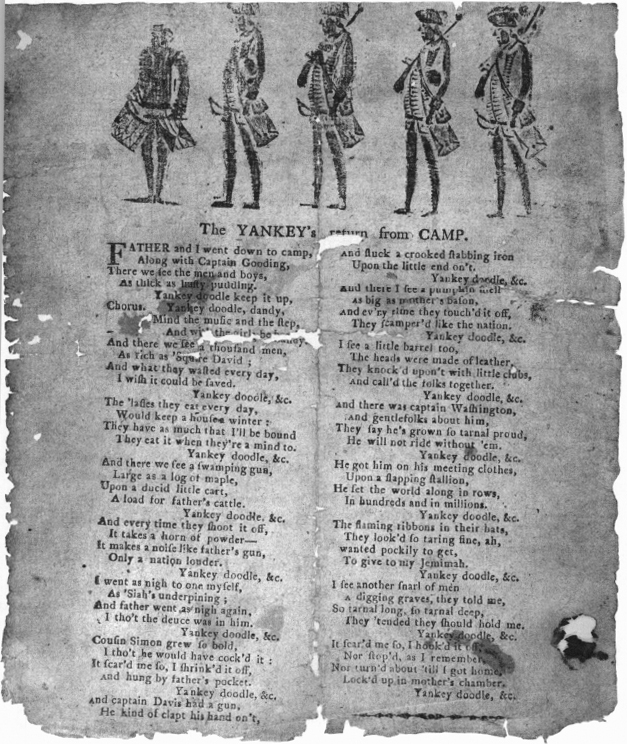 The YANKEY's return from CAMP.
FATHER and I went down to camp,
Along with Captain Gooding,
There we see the men and boys,
As thick as hasty-pudding.
Yankey doodle keep it up,
Chorus. Yankey doodle, dandy,
Mind the music and the step,
And wi the girls be handy
And there we see a thousand men,
As rich as 'Squire David ;
And what they wasted every day,
I wish it could be saved.
Yankey doodle, &c.
The 'lasses they eat every day,
Would keep a house a winter ;
They have as much that I'll be bound
They eat it when they're a mind to.
Yankey doodle, &c.
And there we see a swamping gun,
Large as a log of maple,
Upon a ducid little cart,
A load for father's cattle.
Yankey doodle, &c.
And every time they shoot it off,
It takes a horn of powder—
It makes a noise like father's gun,
Only a nation louder.
Yankey doodle, &c.
I went as nigh to one myself,
As 'Siah's underpining ;
And father went as nigh again,
I tho't the deuce was in him.
Yankey doodle, &c.
Cousin Simon grew so bold,
I tho't he would have cock'd it :
It scar'd me so, I shrink'd it off,
And hung by father's pocket.
Yankey doodle, &c.
And captain Davis had a gun,
He kind of clapt his hand on't,
And stuck a crooked stabbing iron
Upon the little end on't.
Yankey doodle, &c.
And there I see a pumpkin shell
As big as mother's bason,
And ev'ry time they touch'd it off,
They scamper'd like the nation.
Yankey doodle, &c.
I see a little barrel too,
The heads were made of leather,
They knock'd upon't with little clubs,
And call'd the folks together.
Yankey doodle, &c.
and there was captain Washington,
And gentlefolks about him,
They say he's grown so tarnal proud,
He will not ride without 'em.
Yankey doodle, &c.
He got him on his meeting clothes,
Upon a slapping stallion,
He set the world along in rows,
In hundreds and in millions.
Yankey doodle, &c.
The flaming ribbons in their hats,
They look'd so taring fine, ah,
wanted pockily to get,
To give to my Jemimah.
Yankey doodle, &c.
I see another snarl of men
a digging graves, they told me,
So tarnal long, so tarnal deep,
They 'tended they should hold me.
Yankey doodle, &c.
It scar'd me so, I hook'd it off,
Nor stop'd, as I remember,
Nor turn'd about 'till I got home,
Lock'd up in mother's chamber.
Yankey doodle, &c.